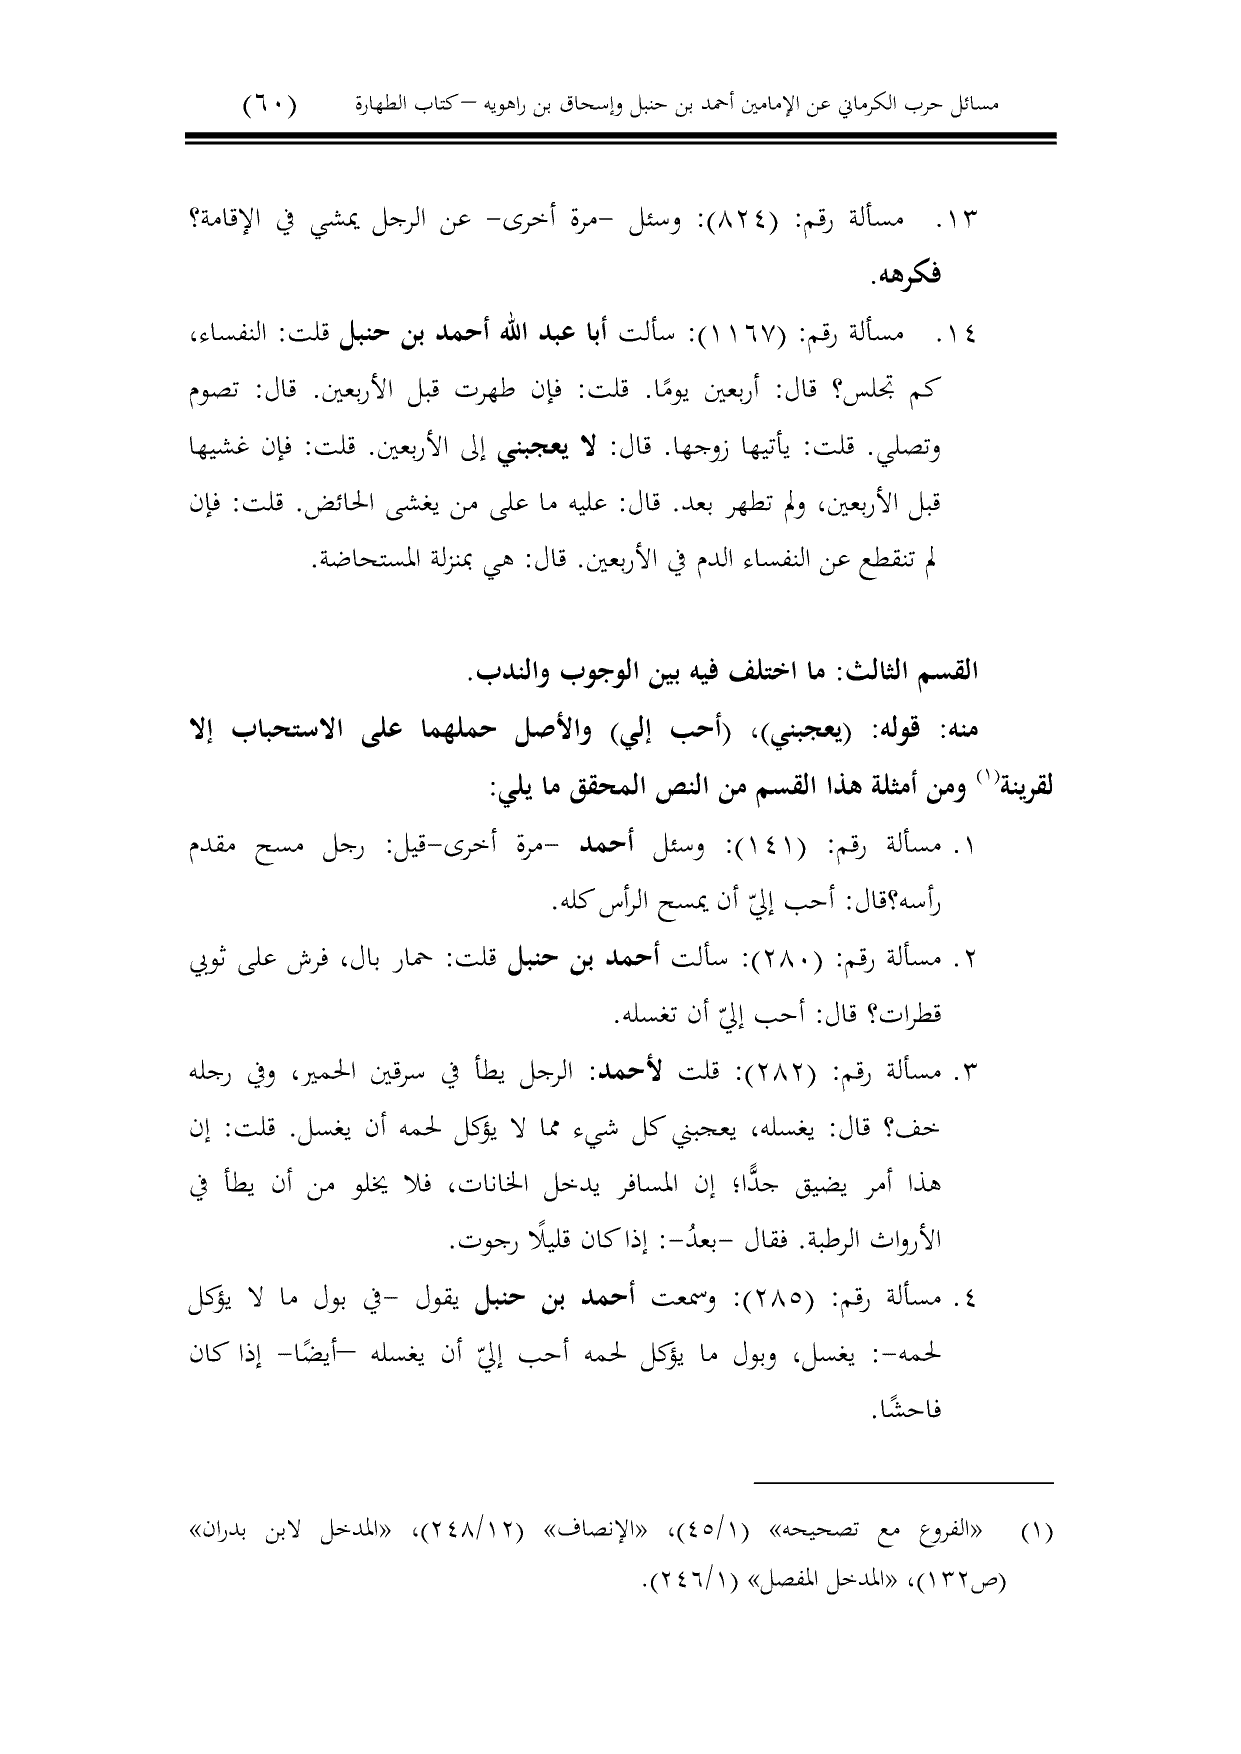 مسائل حرب الكرماني عن الإمامين أحمد بن حنبل وإسحاق بن راهويه –كتاب الطهارة (٦٠)
١٣. مسألة رقم: (٨٢٤): وسئل –مرة أخرى– عن الرجل يمشي في الإقامة؟
فكرهه.
١٤. مسألة رقم: (١١٦٧): سألت أبا عبد الله أحمد بن حنبل قلت: النفساء،
كم تجلس؟ قال: أربعين يومًا. قلت: فإن طهرت قبل الأربعين. قال: تصوم
وتصلي. قلت: يأتيها زوجها. قال: لا يعجبني إلى الأربعين. قلت: فإن غشيها
قبل الأربعين، ولم تطهر بعد. قال: عليه ما على من يغشى الحائض. قلت: فإن
لم تنقطع عن النفساء الدم في الأربعين. قال: هي بمنزلة المستحاضة.
القسم الثالث: ما اختلف فيه بين الوجوب والندب.
منه: قوله: (يعجبني)، (أحب إلي) والأصل حملهما على الاستحباب إلا
لقرينة(١) ومن أمثلة هذا القسم من النص المحقق ما يلي:
١. مسألة رقم: (١٤١): وسئل أحمد –مرة أخرى–قيل: رجل مسح مقدم
رأسه؟قال: أحب إليّ أن يمسح الرأس كله.
٢. مسألة رقم: (٢٨٠): سألت أحمد بن حنبل قلت: حمار بال، فرش على ثوبي
قطرات؟ قال: أحب إليّ أن تغسله.
٣. مسألة رقم: (٢٨٢): قلت لأحمد: الرجل يطأ في سرقين الحمير، وفي رجله
خف؟ قال: يغسله، يعجبني كل شيء مما لا يؤكل لحمه أن يغسل. قلت: إن
هذا أمر يضيق جدًّا؛ إن المسافر يدخل الخانات، فلا يخلو من أن يطأ في
الأرواث الرطبة. فقال –بعدُ–: إذا كان قليلًا رجوت.
٤. مسألة رقم: (٢٨٥): وسمعت أحمد بن حنبل يقول –في بول ما لا يؤكل
لحمه–: يغسل، وبول ما يؤكل لحمه أحب إليّ أن يغسله –أيضًا– إذا كان
فاحشًا.
(١) «الفروع مع تصحيحه» (٤٥/١)، «الإنصاف» (٢٤٨/١٢)، «المدخل لابن بدران»
(ص١٣٢)، «المدخل المفصل» (٢٤٦/١).